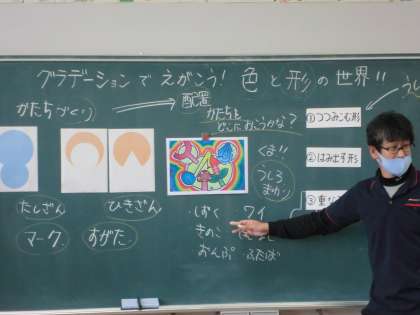 グラデーションで えがこう! 色と形の世界!!
かたちづくり
配置
かたちを
どこにおこうかな?
①つつみこむ形
くま!!
②はみ出す形
うしろ
まわり
たしざん
ひきざん
しずく ワイ
マーク
すがた
きのこ
おんぷ ふたば